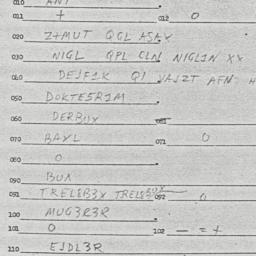 010 ANI
011 + 012 0
020 Z+MUT QGL ASAY
030 NIGL QPL CLN NIGLIN XX
040 DEJF1K QI VAJZT AFN H
050 DOKTE5R1M
060 DERBUX 061
070 BAYL 071 0
080 0
090 BUA
091 TRELEB3X 092 0
100 MUG3R3R
101 0 102 - = +
110 EJDL3R